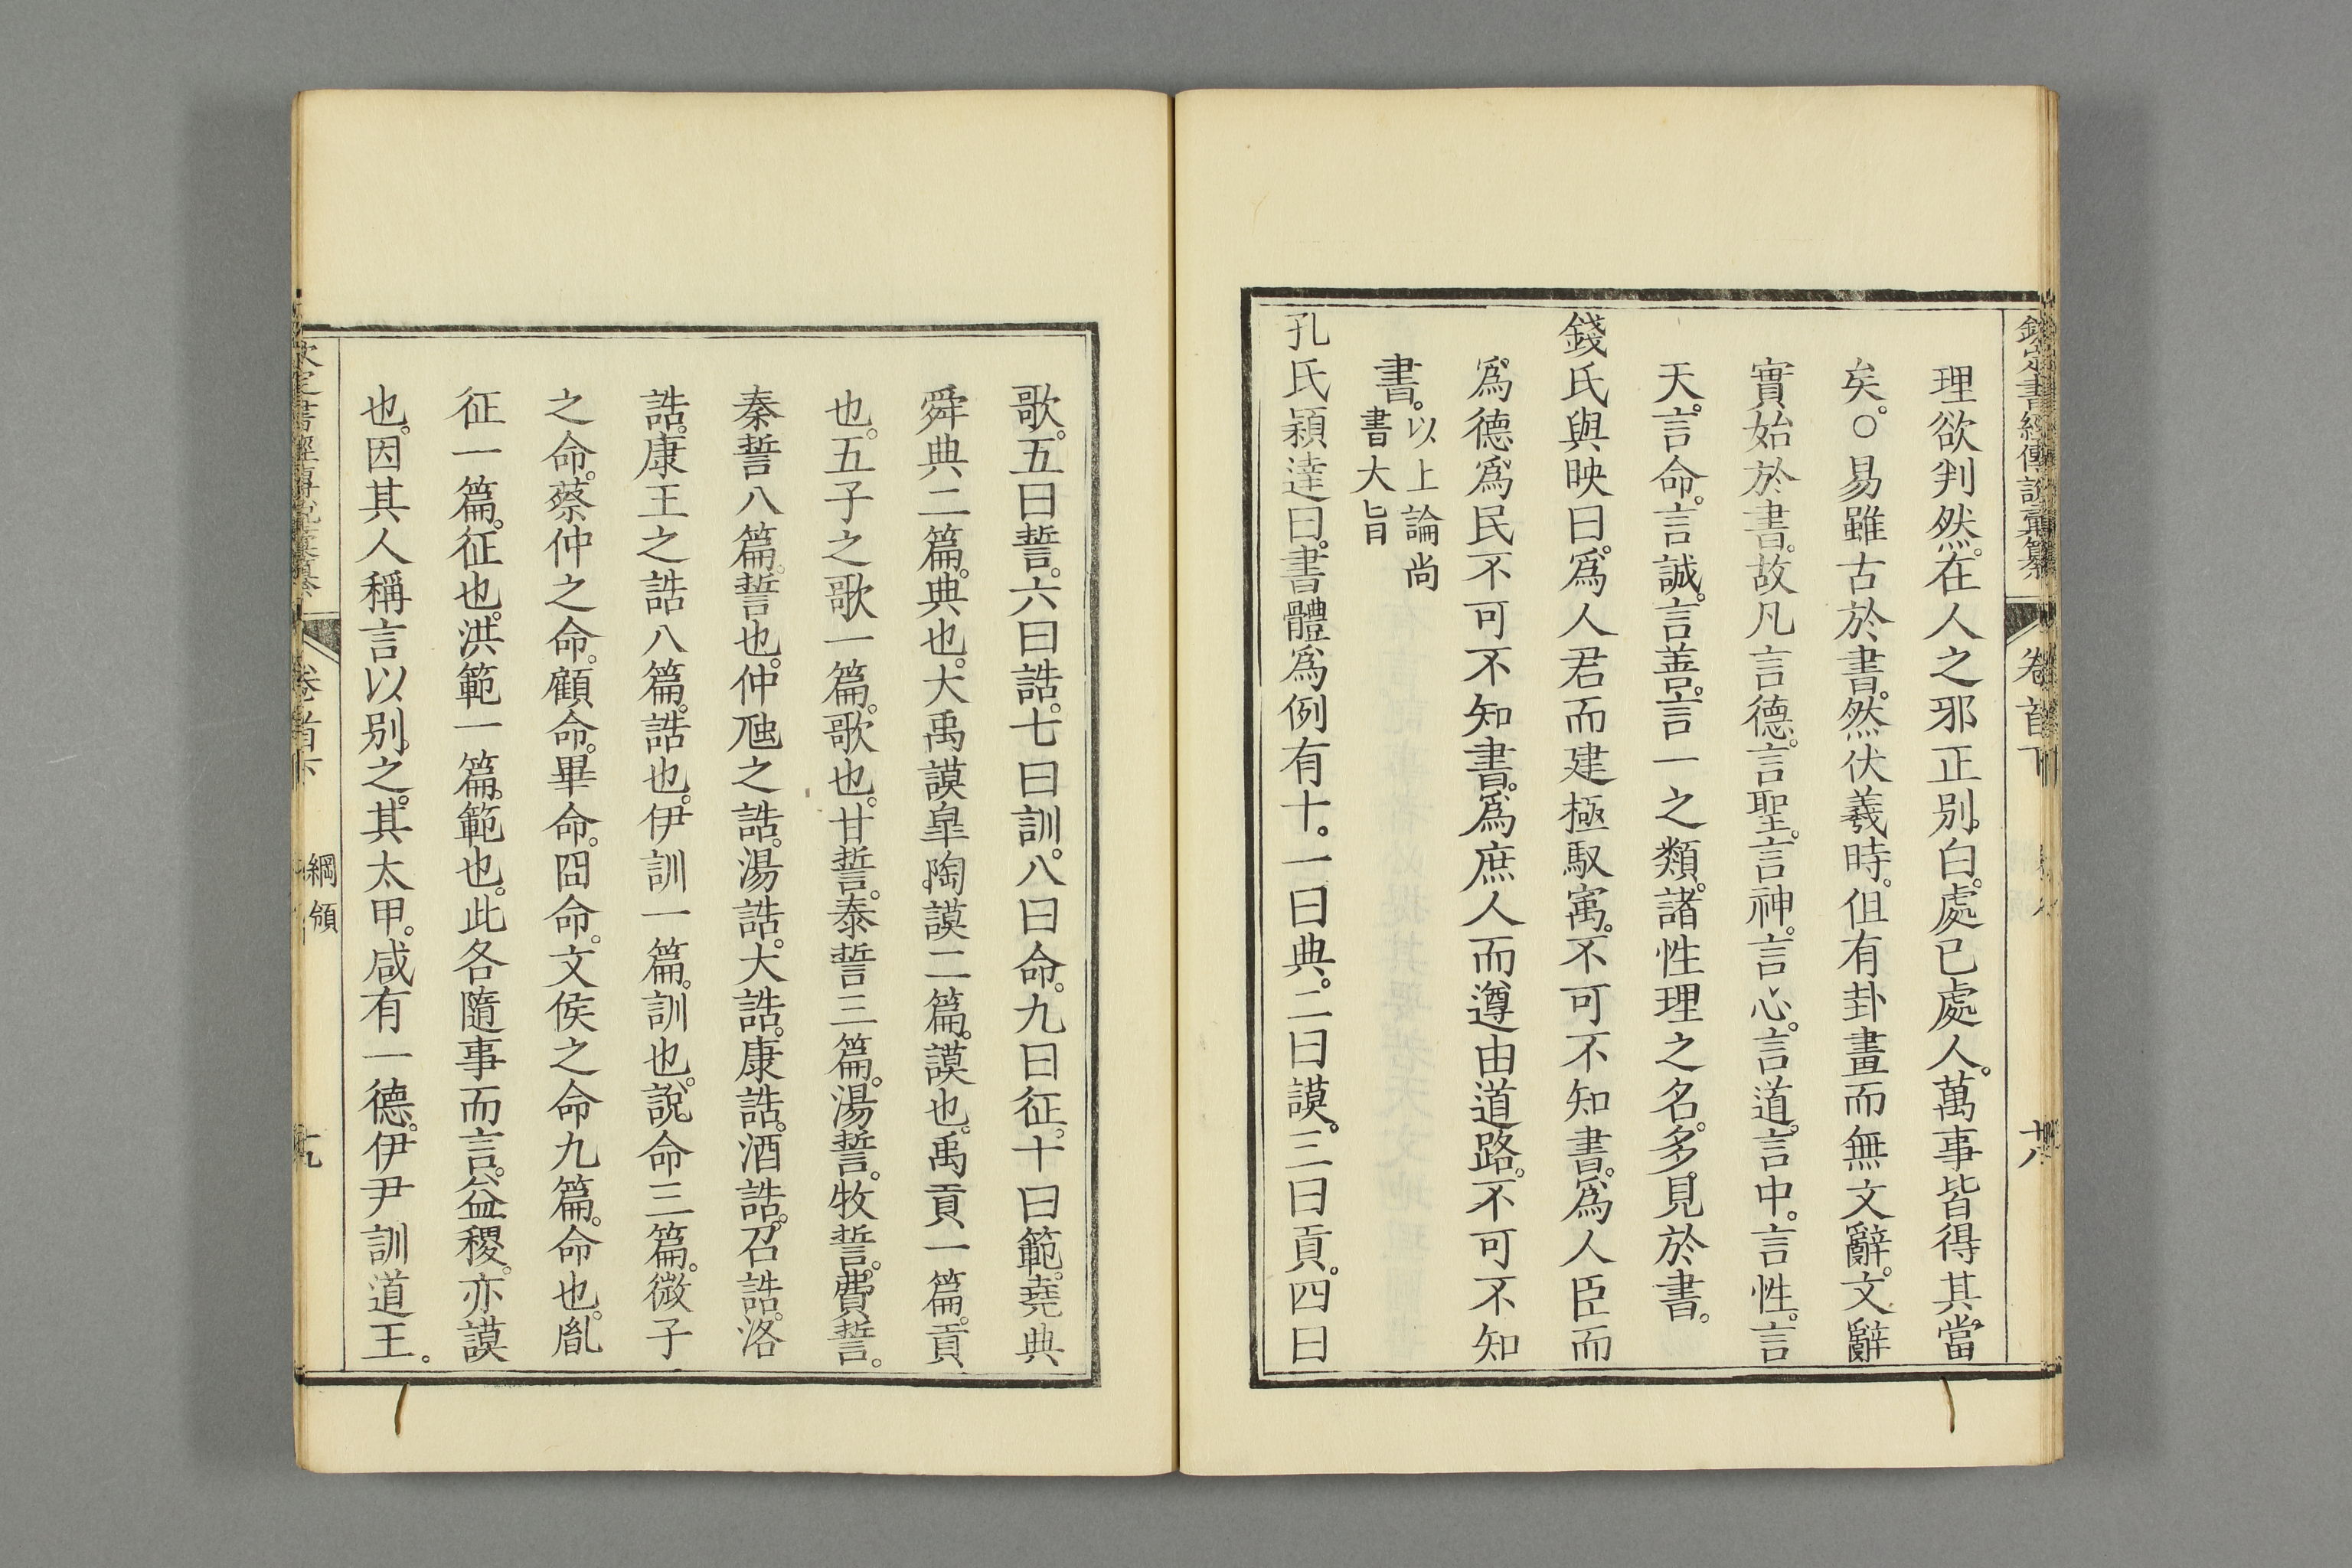 欽定書經傳說彙纂 卷首下
理欲判然。在人之邪正別白。處已處人。萬事皆得其當
矣。○易雖古於書。然伏羲時。但有卦畫而無文辭。文辭
實始於書。故凡言德。言聖。言神。言心。言道。言中。言性。言
天。言命。言誠。言善。言一之類。諸性理之名。多見於書。
錢氏與映曰。爲人君而建極馭寓。不可不知書。爲人臣而
爲德爲民不可不知書。爲庶人而遵由道路。不可不知
書。以上論尚
書大旨
孔氏穎達曰。書體爲例有十。一曰典。二曰謨。三曰貢。四曰
歌。五曰誓。六曰誥。七曰訓。八曰命。九曰征。十曰範。堯典
舜典二篇。典也。大禹謨皐陶謨二篇。謨也。禹貢一篇。貢
也。五子之歌一篇。歌也。甘誓。泰誓三篇。湯誓。牧誓。費誓。
秦誓八篇。誓也。仲虺之誥。湯誥。大誥。康誥。酒誥。召誥。洛
誥。康王之誥八篇。誥也。伊訓一篇。訓也。說命三篇。微子
之命。蔡仲之命。顧命。畢命。冏命。文侯之命九篇。命也。胤
征一篇。征也。洪範一篇。範也。此各隨事而言。益稷。亦謨
也。因其人稱言以別之。其太甲。咸有一德。伊尹訓道王。
欽定書經傳說彙纂 卷首下 綱領